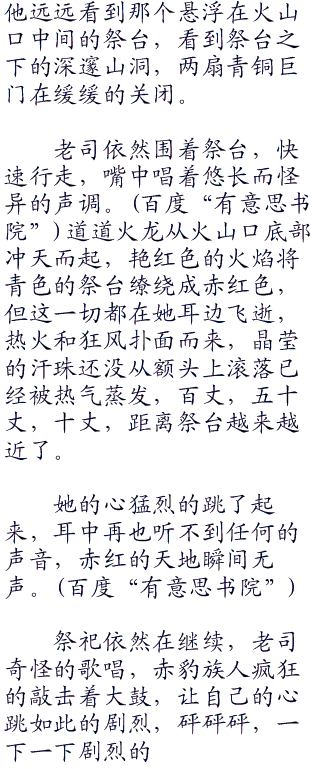 他远远看到那个悬浮在火山
口中间的祭台，看到祭台之
下的深邃山洞，两扇青铜巨
门在缓缓的关闭。
老司依然围着祭台，快
速行走，嘴中唱着悠长而怪
异的声调。(百度“有意思书
院”)道道火龙从火山口底部
冲天而起，艳红色的火焰将
青色的祭台缭绕成赤红色，
但这一切都在她耳边飞逝，
热火和狂风扑面而来，晶莹
的汗珠还没从额头上滚落已
经被热气蒸发，百丈，五十
丈，十丈，距离祭台越来越
近了。
她的心猛烈的跳了起
来，耳中再也听不到任何的
声音，赤红的天地瞬间无
声。(百度“有意思书院”)
祭祀依然在继续，老司
奇怪的歌唱，赤豹族人疯狂
的敲击着大鼓，让自己的心
跳如此的剧烈，砰砰砰，一
下一下剧烈的